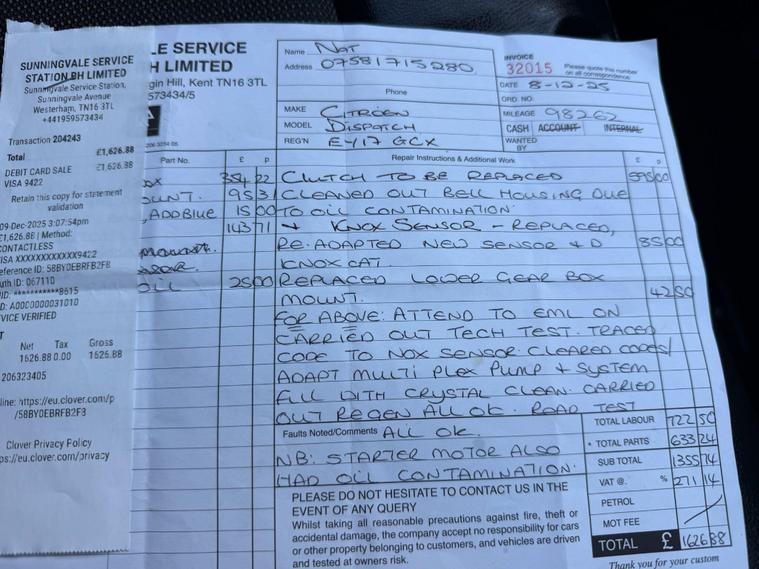 SUNNINGVALE SERVICE
STATION BH LIMITED
Sunningvale Service Station,
Sunningvale Avenue
Westerham, TN16 3TL
+441959573434
Transaction 204243
Total £1,626.88
DEBIT CARD SALE £1,626.88
VISA 9422
Retain this copy for statement
validation
09-Dec-2025 3:07:54pm
£1,626.88 | Method:
CONTACTLESS
VISA XXXXXXXXXXXX9422
eference ID: 58BY0EBRFB2F8
uth ID: 067110
ID: **********8615
ID: A0000000031010
VICE VERIFIED
Net Tax Gross
1626.88 0.00 1626.88
206323405
line: https://eu.clover.com/p
/58BY0EBRFB2F8
Clover Privacy Policy
ps://eu.clover.com/privacy
LE SERVICE
H LIMITED
gin Hill, Kent TN16 3TL
573434/5
Name NAT
Address 07581715280
Phone
MAKE CITROEN
MODEL DISPATCH
REG'N EY17 GCX
INVOICE
32015 Please quote this number
on all correspondence
DATE 8-12-25
ORD. NO.
MILEAGE 98262
CASH ACCOUNT INTERNAL
WANTED
BY
Part No. £ p Repair Instructions & Additional Work £ p
354 22 CLUTCH TO BE REPLACED 595 00
OUNT. 95 31 CLEANED OUT BELL HOUSING DUE
ADDBLUE 15 00 TO OIL CONTAMINATION.
143 71 + KNOX SENSOR - REPLACED,
MOUNT. RE-ADAPTED NEW SENSOR & D 85 00
KNOX CAT.
OIL 25 00 REPLACED LOWER GEAR BOX
MOUNT. 42 50
FOR ABOVE: ATTEND TO EML ON
CARRIED OUT TECH TEST. TRACED
CODE TO NOX SENSOR CLEARED CODES/
ADAPT MULTI PLEX PUMP & SYSTEM
FILL WITH CRYSTAL CLEAN. CARRIED
OUT REGEN ALL OK. ROAD TEST
Faults Noted/Comments ALL OK
NB: STARTER MOTOR ALSO
HAD OIL CONTAMINATION.
TOTAL LABOUR 722 50
TOTAL PARTS 633 24
SUB TOTAL 1355 74
VAT @. % 271 14
PETROL
MOT FEE
TOTAL £ 1626 88
PLEASE DO NOT HESITATE TO CONTACT US IN THE
EVENT OF ANY QUERY
Whilst taking all reasonable precautions against fire, theft or
accidental damage, the company accept no responsibility for cars
or other property belonging to customers, and vehicles are driven
and tested at owners risk.
Thank you for your custom